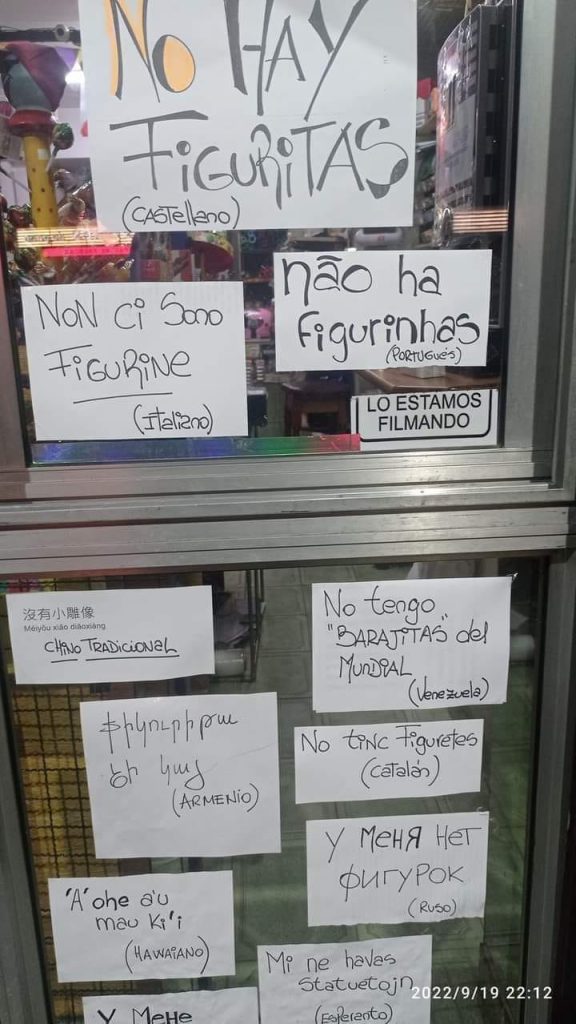 No HAY
FiGURiTAS
(CASTellano)
não ha
figurinhas
(PORTUGUÉS)
NoN Ci Sono
FiGURiNE
(Italiano)
LO ESTAMOS
FILMANDO
沒有小雕像
Méiyǒu xiǎo diāoxiàng
CHiNO TRADICIONAL
No tengo
"BARAJiTAS" del
MUNDiAL
(Venezuela)
ֆիկուրիթա
կայ
(ARMENiO)
No tiNC Figuretes
(Catalán)
У МеНЯ Нет
фигурок
(Ruso)
'A'ohe a'u
mau Ki'i
(HAWAiANO)
Mi ne havas
Statuetojn
(Esperento)
У Мене
2022/9/19 22:12